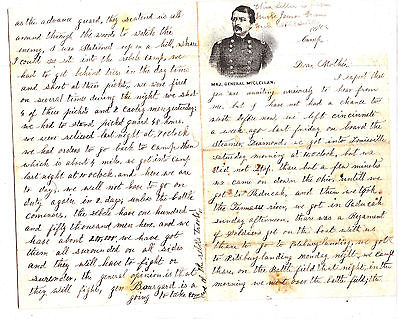 Camp
Dear Mother
I expect that
you are waiting anxiously to hear from
me, but I have not had a chance to
write before now, we left cincinnati
a week ago last friday on board the
steamer Diamond, we got into Louisville
saturday morning at 10 oclock, but we
did not stop there but a few minutes
we came on down the Ohio, until we
got to Paducah, and then we took
the Tennessee river, we got in Paducah
sunday afternoon, there was a Regiment
of soldiers got on the boat with us
there to go to Pittsburg landing, we got
to Pittsburg landing monday night, we camped
there, on the Battle field that night, in the
morning we went over the battle field, the
MAJ. GENERAL McCLELLAN.
as the advance guard, they scattered us all
around through the woods to watch the
enemy, I was stationed up on a hill, where
I could see right into the rebels camp, we
had to get behind trees in the day time
and shoot at their pickets, we were fired
on several times during the night, we shot
4 of there pickets and 2 Cavelry men yesterday;
we had to stand picket guard 24 hours,
we were relieved last night at 7 oclock
we had orders to go back to camp then,
which is about 4 miles, we got into camp
last night at 10 oclock, and, here we are
to day, we will not have to go on
duty again in 2 days, unless the battle
comences, the rebels have one hundred
and fifty thousand men here, and we
have about 200,000, we have got
them all surrounded on all sides
and they will have to fight or
surrender, the general opinion is that
they will fight, gen Bauregard is
going to take com